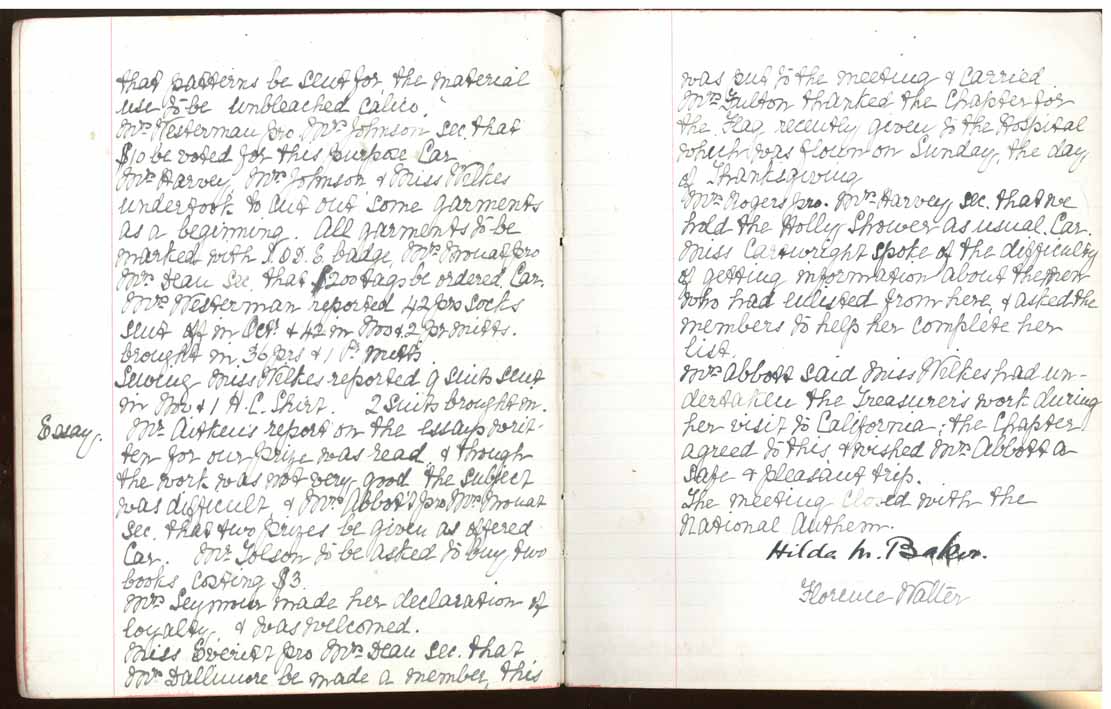 that patterns be sent for, the material
use to be unbleached calico.
Mrs Westerman pro Mrs Johnson sec. that
$10 be voted for this purpose Car
Mrs Harvey, Mrs Johnson & Miss Wilkes
undertook to cut out some garments
as a beginning. All garments to be
marked with I.O.D.E badge, Mrs Mouat pro
Mrs Dean Sec. that $200 tags be ordered. Car.
Mrs Westerman reported 42 prs socks
sent off in Oct. & 42 in Nov & 2 pr mitts.
brought in 36 prs & 1 Pr mitts
Sewing Miss Wilkes reported 9 suits sent
in Nov & 1 H.C. Shirt. 2 suits brought in.
Essay. Mr Aitken's report on the essays writ-
ten for our Prize was read & though
the work was not very good the subject
was difficult, & Mrs Abbott pro Mrs Mouat
sec. that two prizes be given as offered
Car. Mr Tolson to be asked to buy two
books costing $3.
Mrs Seymour made her declaration of
loyalty, & was welcomed.
Miss Everitt pro Mrs Dean sec. that
Mrs Dallimore be made a member, this
was put to the meeting & carried.
Mrs Fulton thanked the Chapter for
the Flag recently given to the Hospital
which was flown on Sunday, the day
of Thanksgiving
Mrs Rogers pro. Mrs Harvey sec. that we
hold the Holly Shower as usual. Car.
Miss Cartwright spoke of the difficulty
of getting information about the men
who had enlisted from here, & asked the
members to help her complete her
list.
Mrs Abbott said Miss Wilkes had un-
dertaken the Treasurers work during
her visit to California; the Chapter
agreed to this & wished Mrs Abbott a
safe & pleasant trip.
The meeting closed with the
National Anthem.
Hilda M. Baker.
Florence Walter